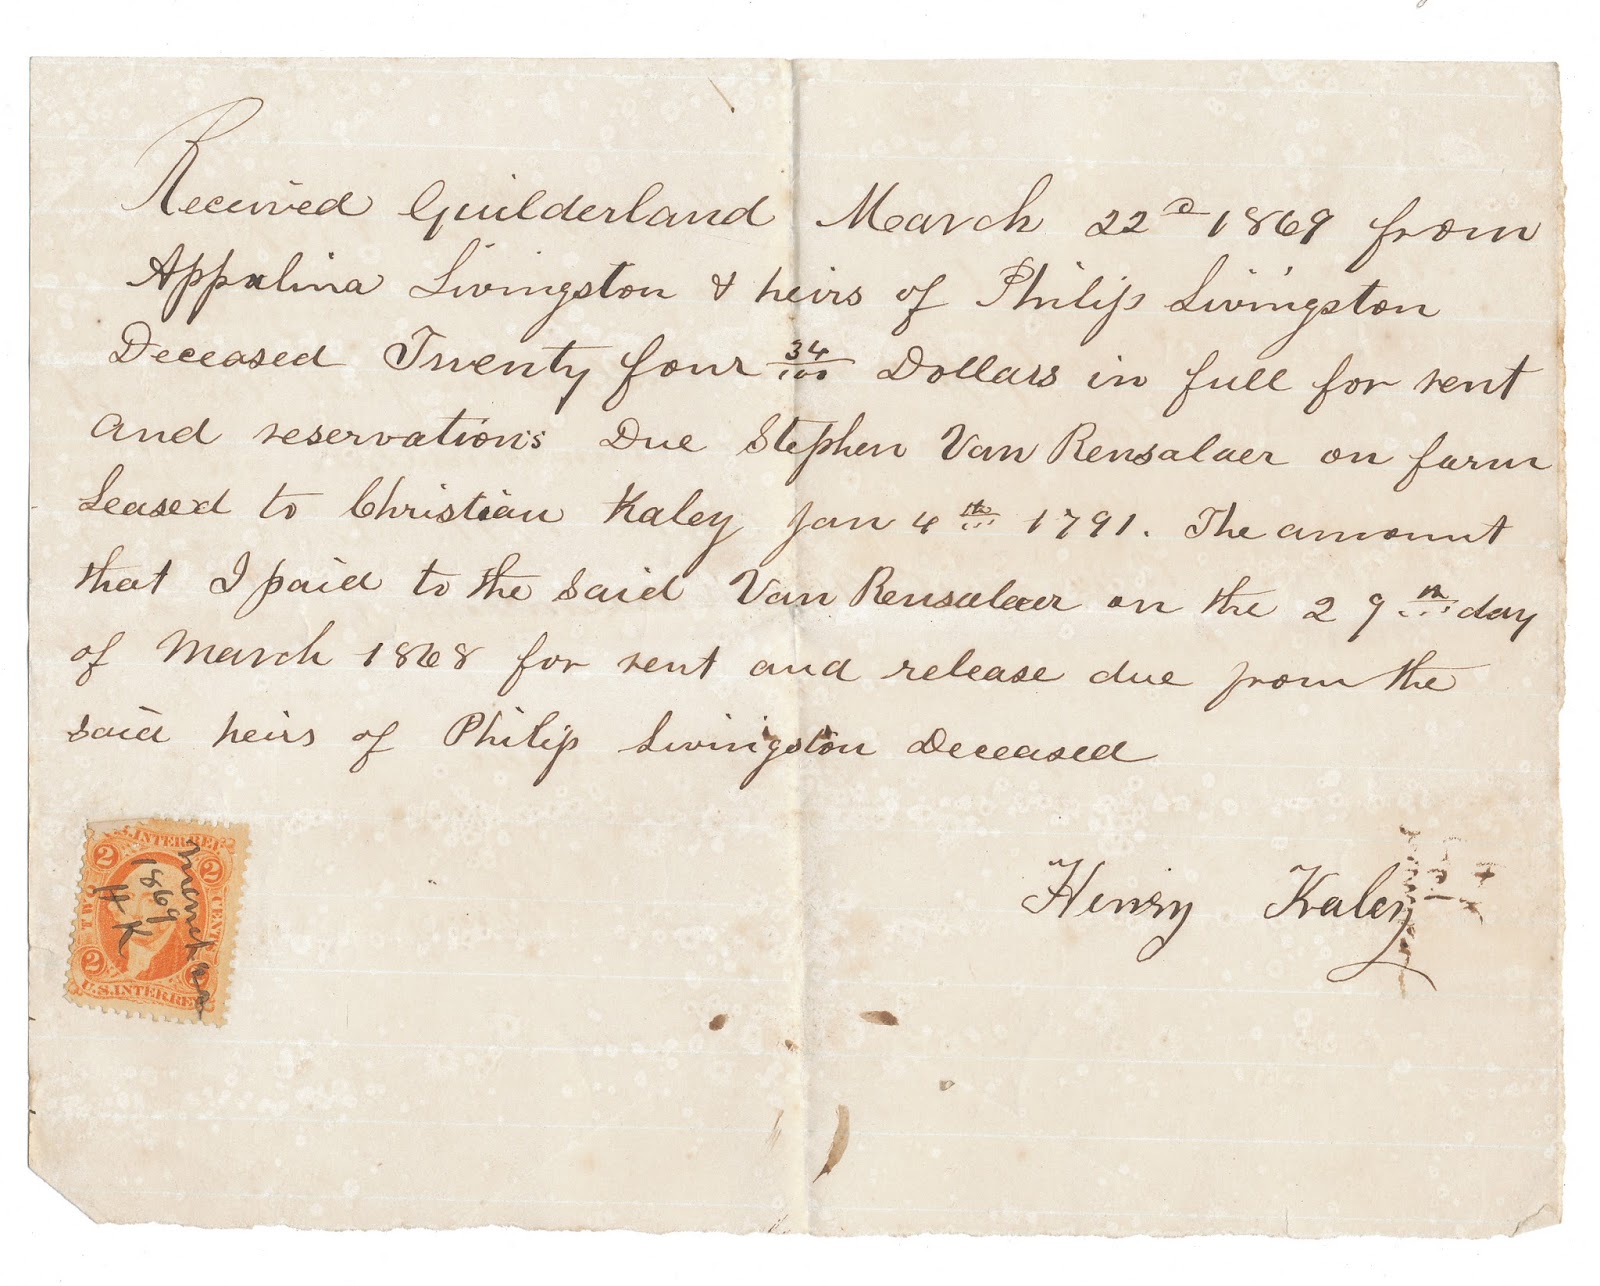 Received Guilderland March 22d 1869 from
Appalina Livingston & heirs of Philip Livingston
Deceased Twenty four 34/100 Dollars in full for rent
and reservations Due Stephen Van Rensalaer on farm
Leased to Christian Kaley Jan 4th 1791. The amount
that I paid to the said Van Rensalaer on the 29th day
of March 1868 for rent and release due from the
said heirs of Philip Livingston Deceased
Henry Kaley
U.S. INTER. REV.
2 2
TWO CENTS
2
U.S. INTER. REV.
March
1869
H K